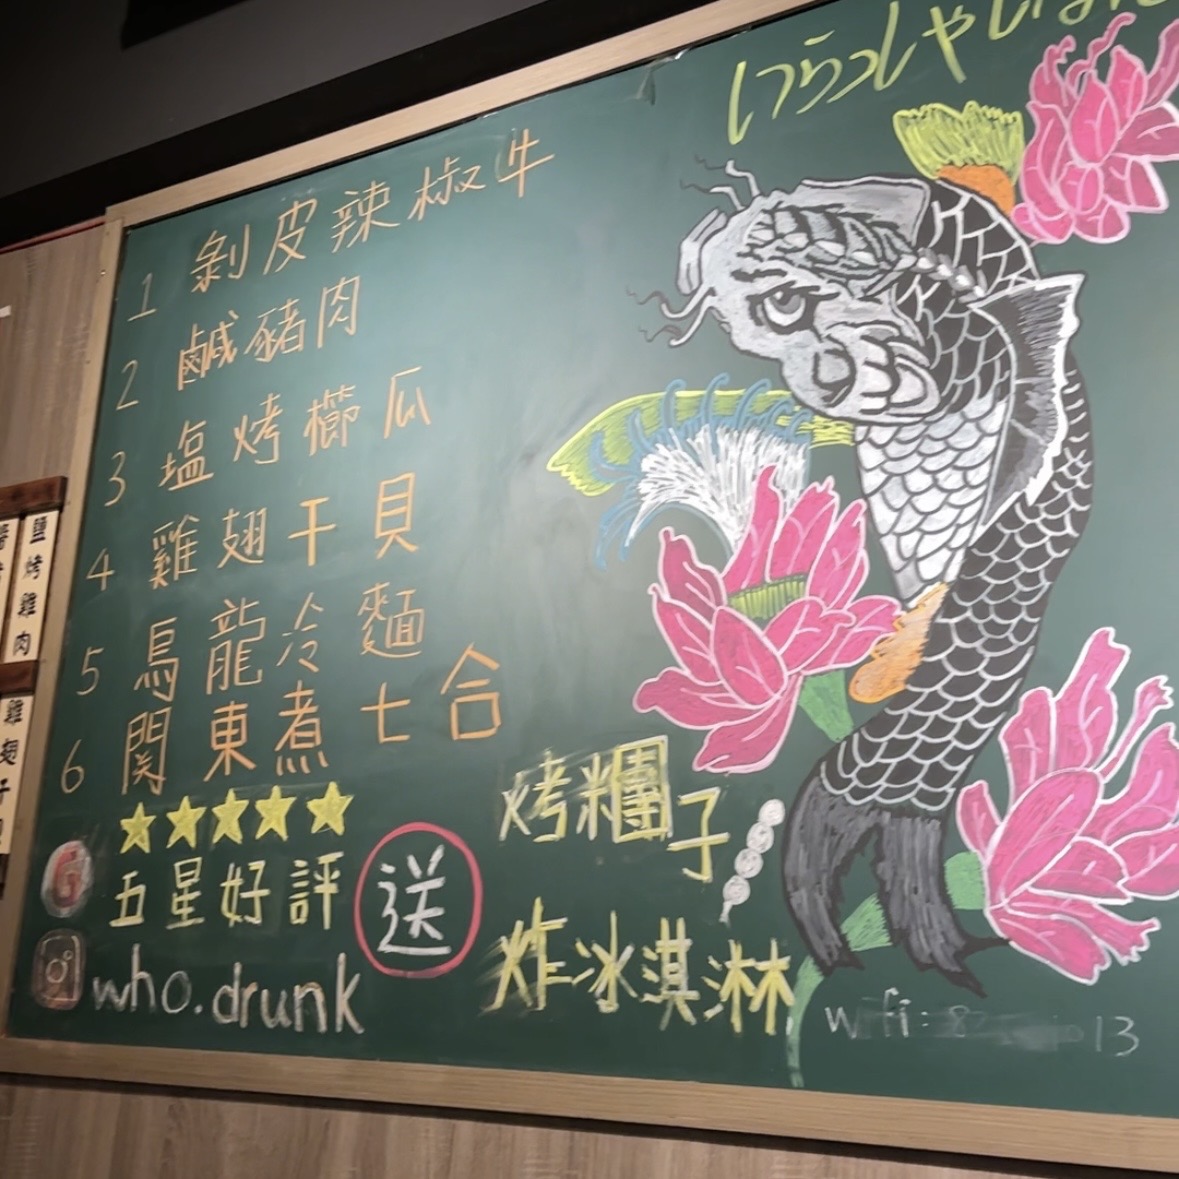 いらっしゃいませ
1 剝皮辣椒牛
2 鹹豬肉
3 塩烤櫛瓜
4 雞翅干貝
5 烏龍冷麵
6 關東煮七合
五星好評
送
烤糰子
炸冰淇淋
who.drunk
wifi: 13
鹽烤雞肉